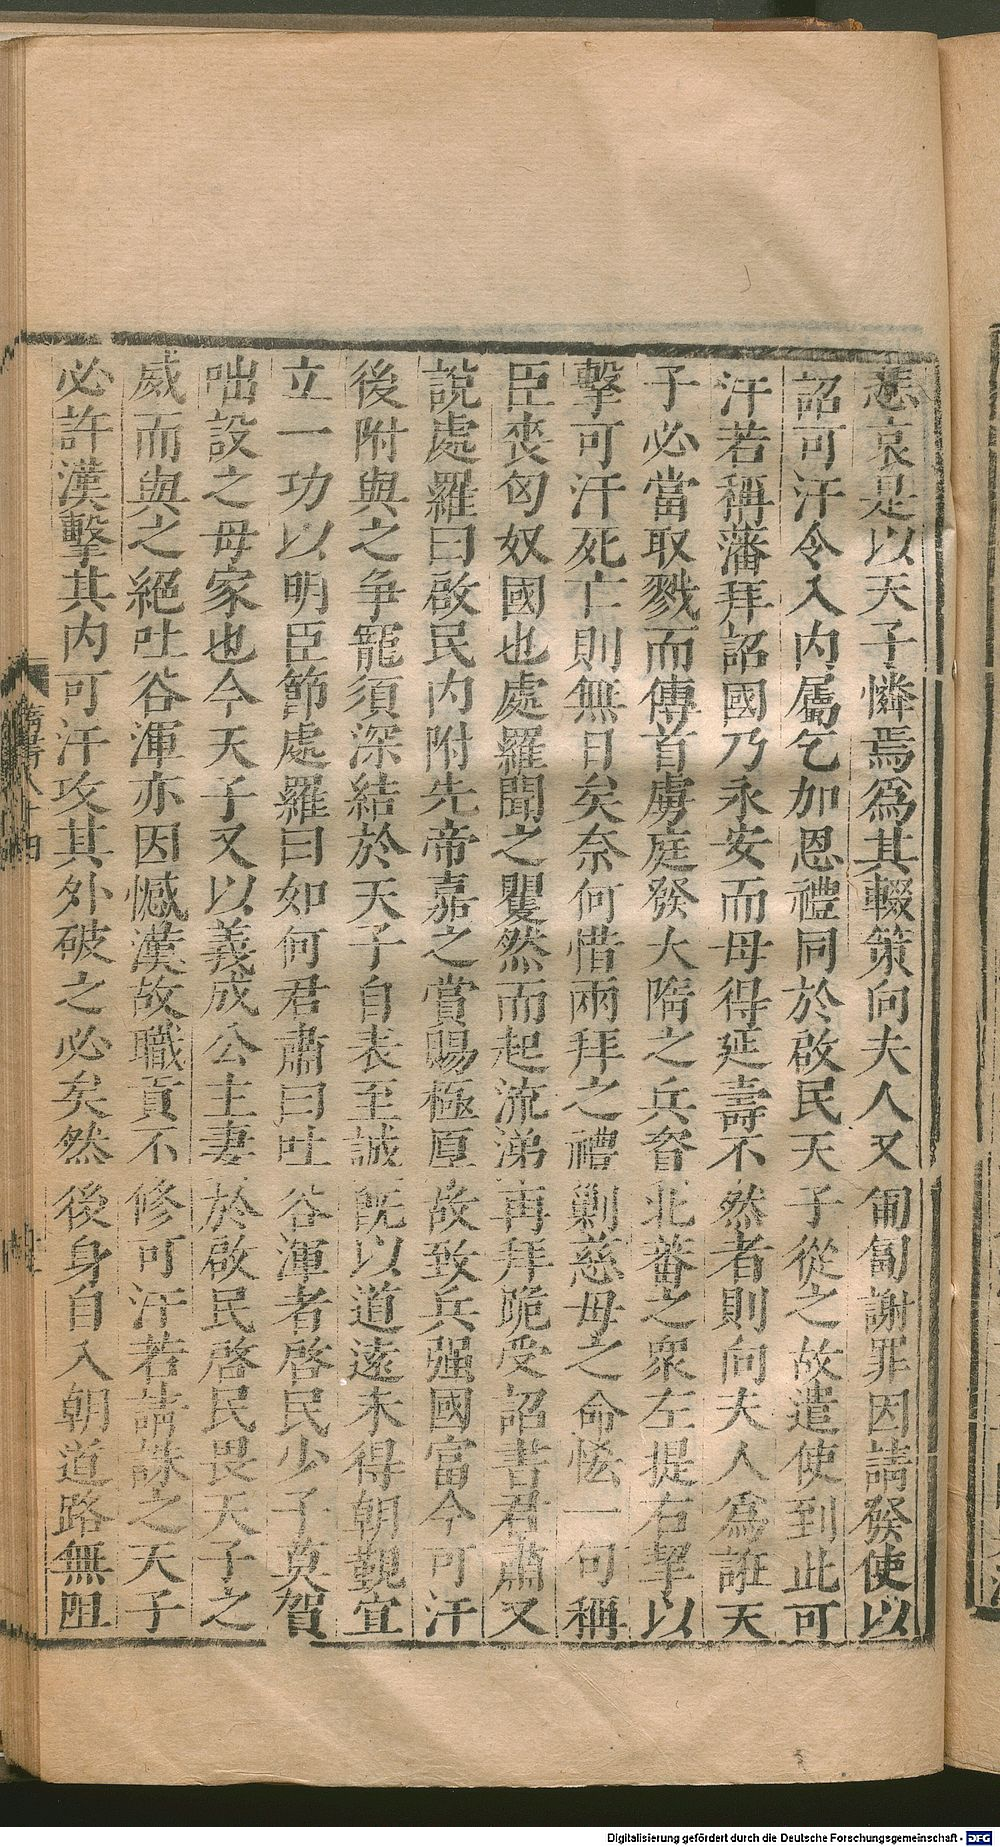 悲哀是以天子憐焉爲其輟策向夫人又匍匐謝罪因請發使以
詔可汗令入内屬乞加恩禮同於啟民天子從之故遣使到此可
汗若稱藩拜詔國乃永安而母得延壽不然者則向夫人爲誑天
子必當取戮而傳首虜庭發大隋之兵資北蕃之衆左提右挈以
擊可汗死亡則無日矣奈何惜兩拜之禮剿慈母之命恡一句稱
臣喪匈奴國也處羅聞之矍然而起流涕再拜跪受詔書君肅又
說處羅曰啟民内附先帝嘉之賞賜極厚故致兵强國富今可汗
後附與之争寵須深結於天子自表至誠旣以道遠未得朝覲宜
立一功以明臣節處羅曰如何君肅曰吐谷渾者啓民少子莫賀
咄設之母家也今天子又以義成公主妻於啟民啓民畏天子之
威而與之絕吐谷渾亦因憾漢故職貢不修可汗若請誅之天子
必許漢擊其内可汗攻其外破之必矣然後身自入朝道路無阻
隋書八十四
Digitalisierung gefördert durch die Deutsche Forschungsgemeinschaft - DFG